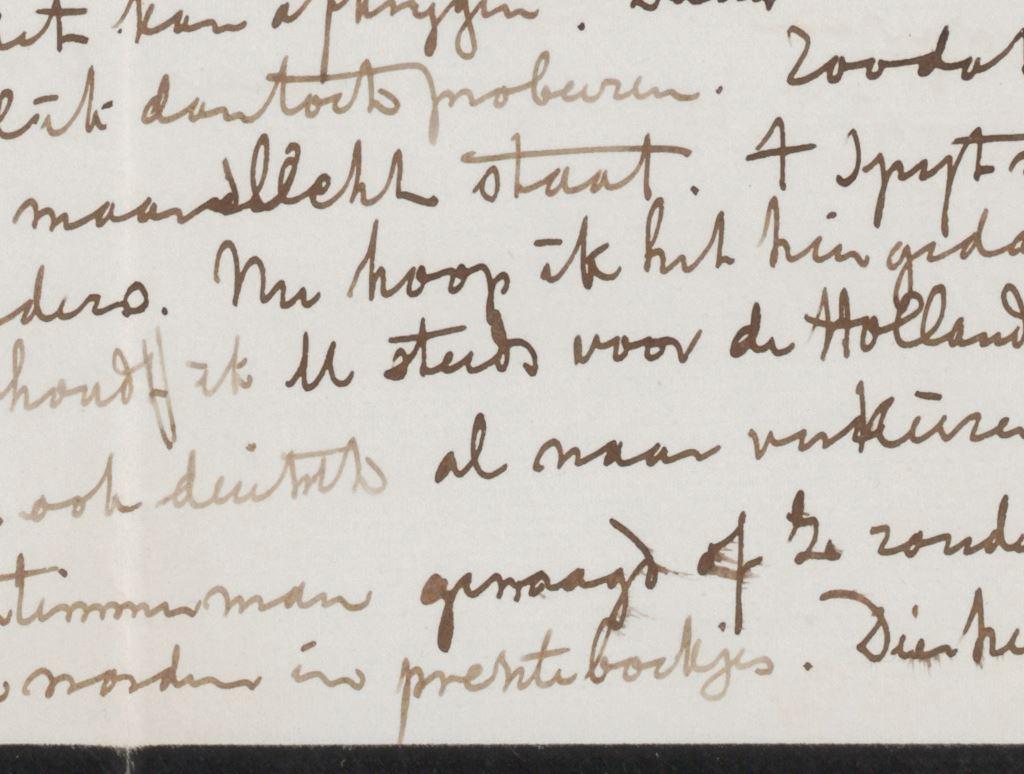 kan afkrijgen.
ik dan toch probeeren. Zoodat
maandlicht staat. + Spijt
ders. Nu hoop ik het hin geda
houdt ik U steeds voor de Holland
ook deutsch al naar verkiezen
timmerman gevraagd of ze zonde
worden in prenteboekjes. Die